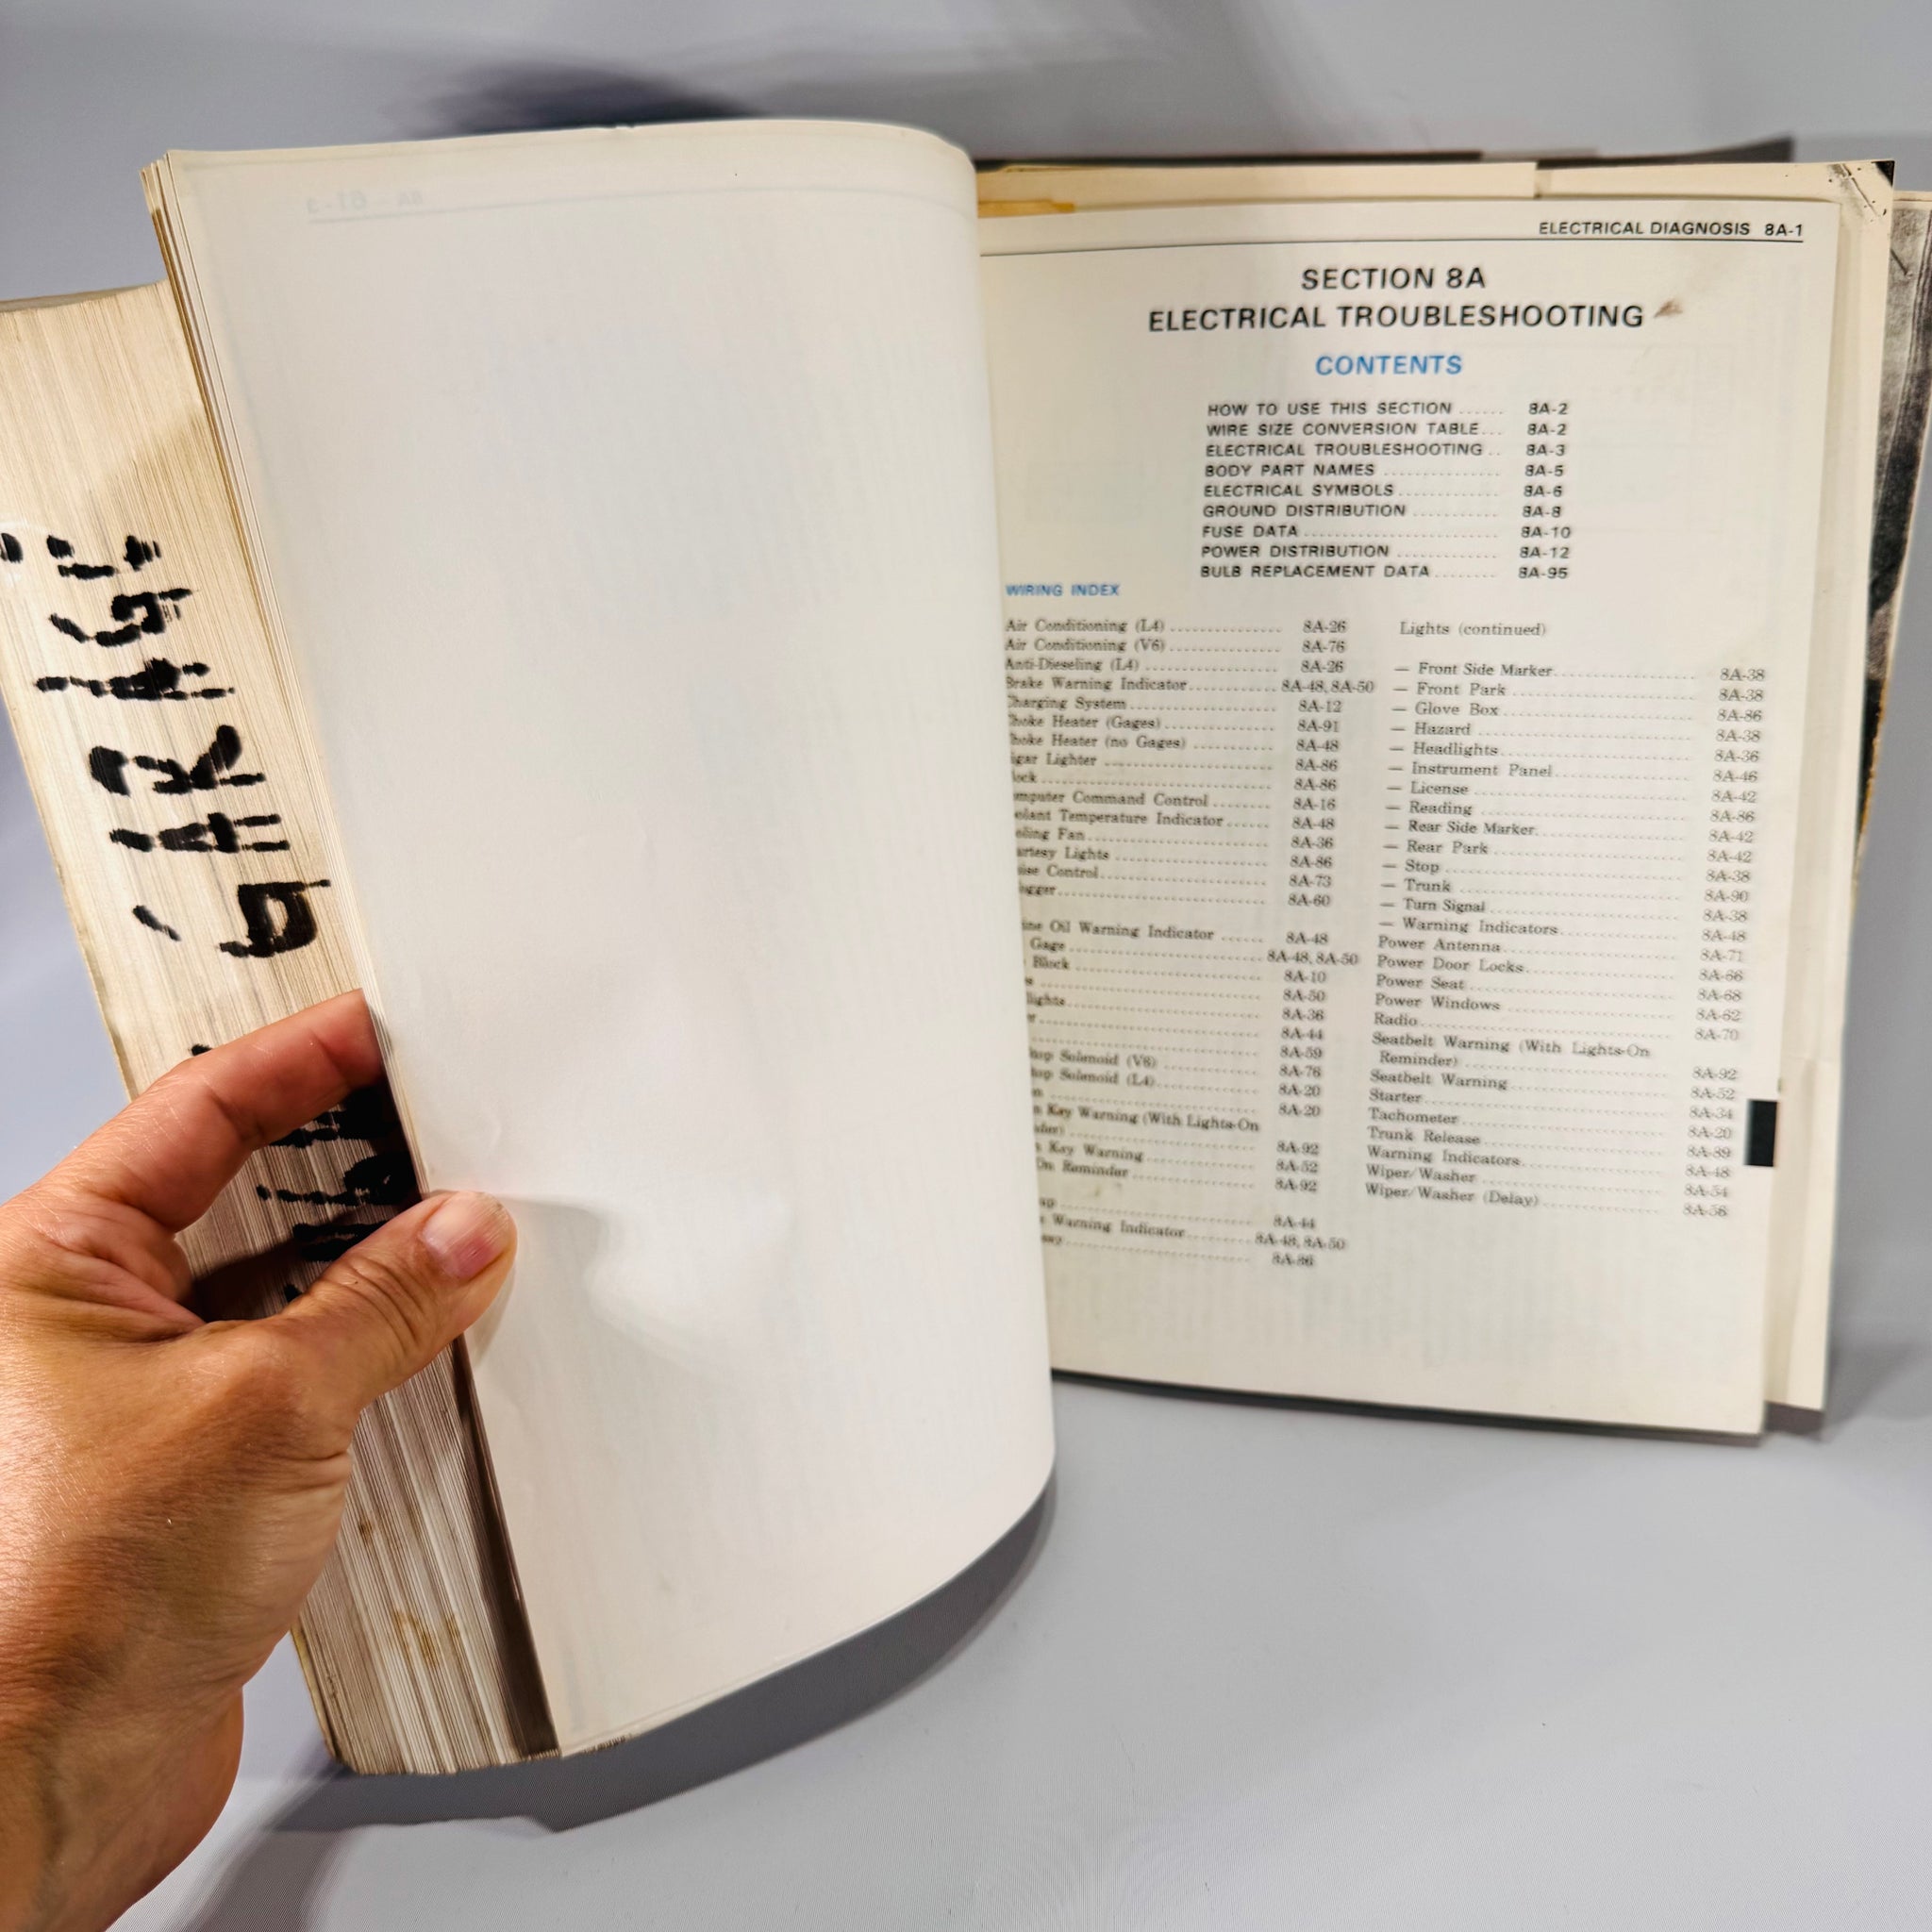 ELECTRICAL DIAGNOSIS 8A-1
SECTION 8A
ELECTRICAL TROUBLESHOOTING
CONTENTS
HOW TO USE THIS SECTION ...... 8A-2
WIRE SIZE CONVERSION TABLE... 8A-2
ELECTRICAL TROUBLESHOOTING .. 8A-3
BODY PART NAMES ............ 8A-5
ELECTRICAL SYMBOLS ............ 8A-6
GROUND DISTRIBUTION ........... 8A-8
FUSE DATA ......................... 8A-10
POWER DISTRIBUTION ............. 8A-12
BULB REPLACEMENT DATA ........ 8A-95
WIRING INDEX
Air Conditioning (L4) ................ 8A-26
Air Conditioning (V6) ................ 8A-76
Anti-Dieseling (L4) ................ 8A-26
Brake Warning Indicator ............ 8A-48, 8A-50
Charging System ................ 8A-12
Choke Heater (Gages) ................ 8A-91
Choke Heater (no Gages) ............ 8A-48
igar Lighter ................ 8A-86
lock ................ 8A-86
omputer Command Control ........ 8A-16
oolant Temperature Indicator ...... 8A-48
oling Fan ................ 8A-36
urtesy Lights ................ 8A-86
uise Control ................ 8A-73
ogger ................ 8A-60
ine Oil Warning Indicator ...... 8A-48
Gage ................ 8A-48, 8A-50
Block ................ 8A-10
8A-50
lights ................ 8A-36
8A-44
8A-59
top Solenoid (V6) ................ 8A-76
top Solenoid (L4) ................ 8A-20
8A-20
n Key Warning (With Lights-On
der) ................ 8A-92
n Key Warning ................ 8A-52
On Reminder ................ 8A-92
8A-44
Warning Indicator ........ 8A-48, 8A-50
8A-86
Lights (continued)
— Front Side Marker ................ 8A-38
— Front Park ................ 8A-38
— Glove Box ................ 8A-86
— Hazard ................ 8A-38
— Headlights ................ 8A-36
— Instrument Panel ................ 8A-46
— License ................ 8A-42
— Reading ................ 8A-86
— Rear Side Marker ................ 8A-42
— Rear Park ................ 8A-42
— Stop ................ 8A-38
— Trunk ................ 8A-90
— Turn Signal ................ 8A-38
— Warning Indicators ................ 8A-48
Power Antenna ................ 8A-71
Power Door Locks ................ 8A-66
Power Seat ................ 8A-68
Power Windows ................ 8A-62
Radio ................ 8A-70
Seatbelt Warning (With Lights-On
Reminder) ................ 8A-92
Seatbelt Warning ................ 8A-52
Starter ................ 8A-34
Tachometer ................ 8A-20
Trunk Release ................ 8A-89
Warning Indicators ................ 8A-48
Wiper/Washer ................ 8A-54
Wiper/Washer (Delay) ................ 8A-56
GARAGE